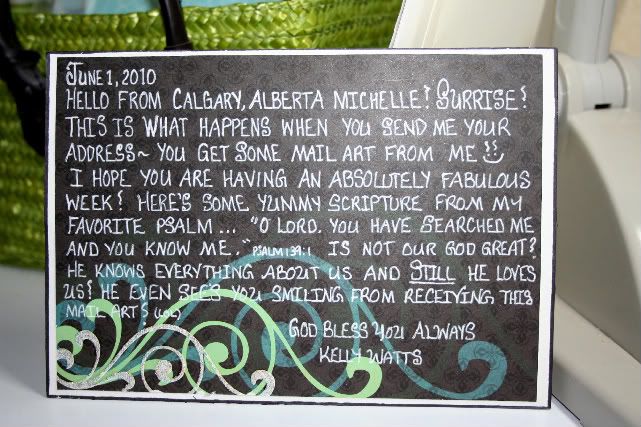 June 1, 2010
Hello from Calgary, Alberta Michelle! Surrise!
This is what happens when you send me your
address~ you get some mail art from me
I hope you are having an absolutely fabulous
week! Here's some yummy scripture from my
favorite psalm... "O Lord. you have searched me
and you know me." Psalm 139:1 Is not our God great?
He knows everything about us and still He loves
us! He even sees you smiling from receiving this
mail art! (lol)
God bless you always
Kelly Watts